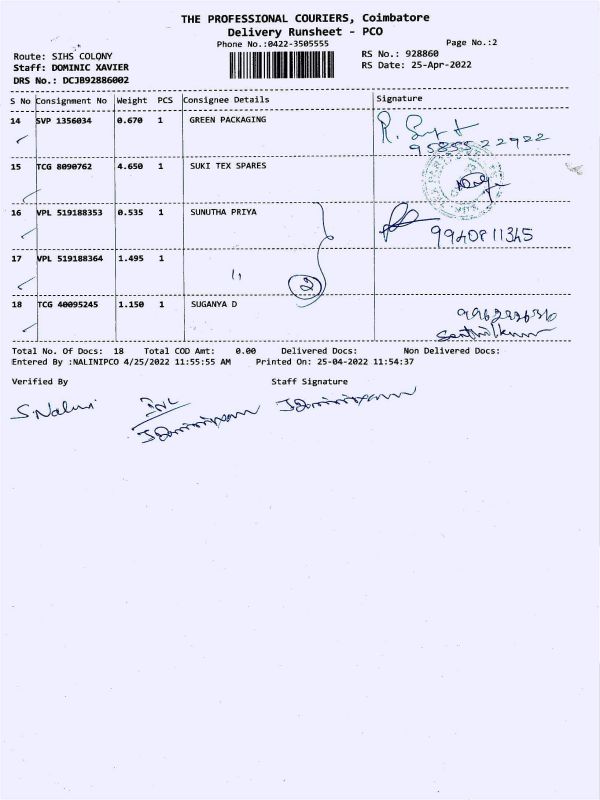 THE PROFESSIONAL COURIERS, Coimbatore
Delivery Runsheet - PCO
Phone No.:0422-3505555
Page No.:2
Route: SIHS COLONY
Staff: DOMINIC XAVIER
DRS No.: DCJB92886002
RS No.: 928860
RS Date: 25-Apr-2022
S No Consignment No Weight PCS Consignee Details Signature
14 SVP 1356034 0.670 1 GREEN PACKAGING
15 TCG 8090762 4.650 1 SUKI TEX SPARES
16 VPL 519188353 0.535 1 SUNUTHA PRIYA
9940811345
17 VPL 519188364 1.495 1
2
18 TCG 40095245 1.150 1 SUGANYA D
Senthilkumar
Total No. Of Docs: 18 Total COD Amt: 0.00 Delivered Docs: Non Delivered Docs:
Entered By :NALINIPCO 4/25/2022 11:55:55 AM Printed On: 25-04-2022 11:54:37
Verified By Staff Signature
S.Nalini